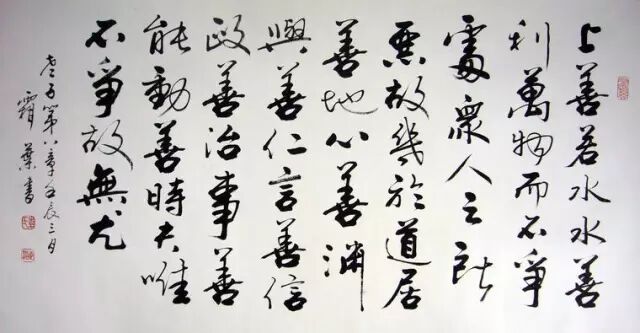 上善若水水善
利萬物而不爭
處衆人之所
惡故幾於道居
善地心善渊
與善仁言善信
政善治事善
能動善時夫唯
不爭故無尤
老子第八章壬辰三月
霜葉書